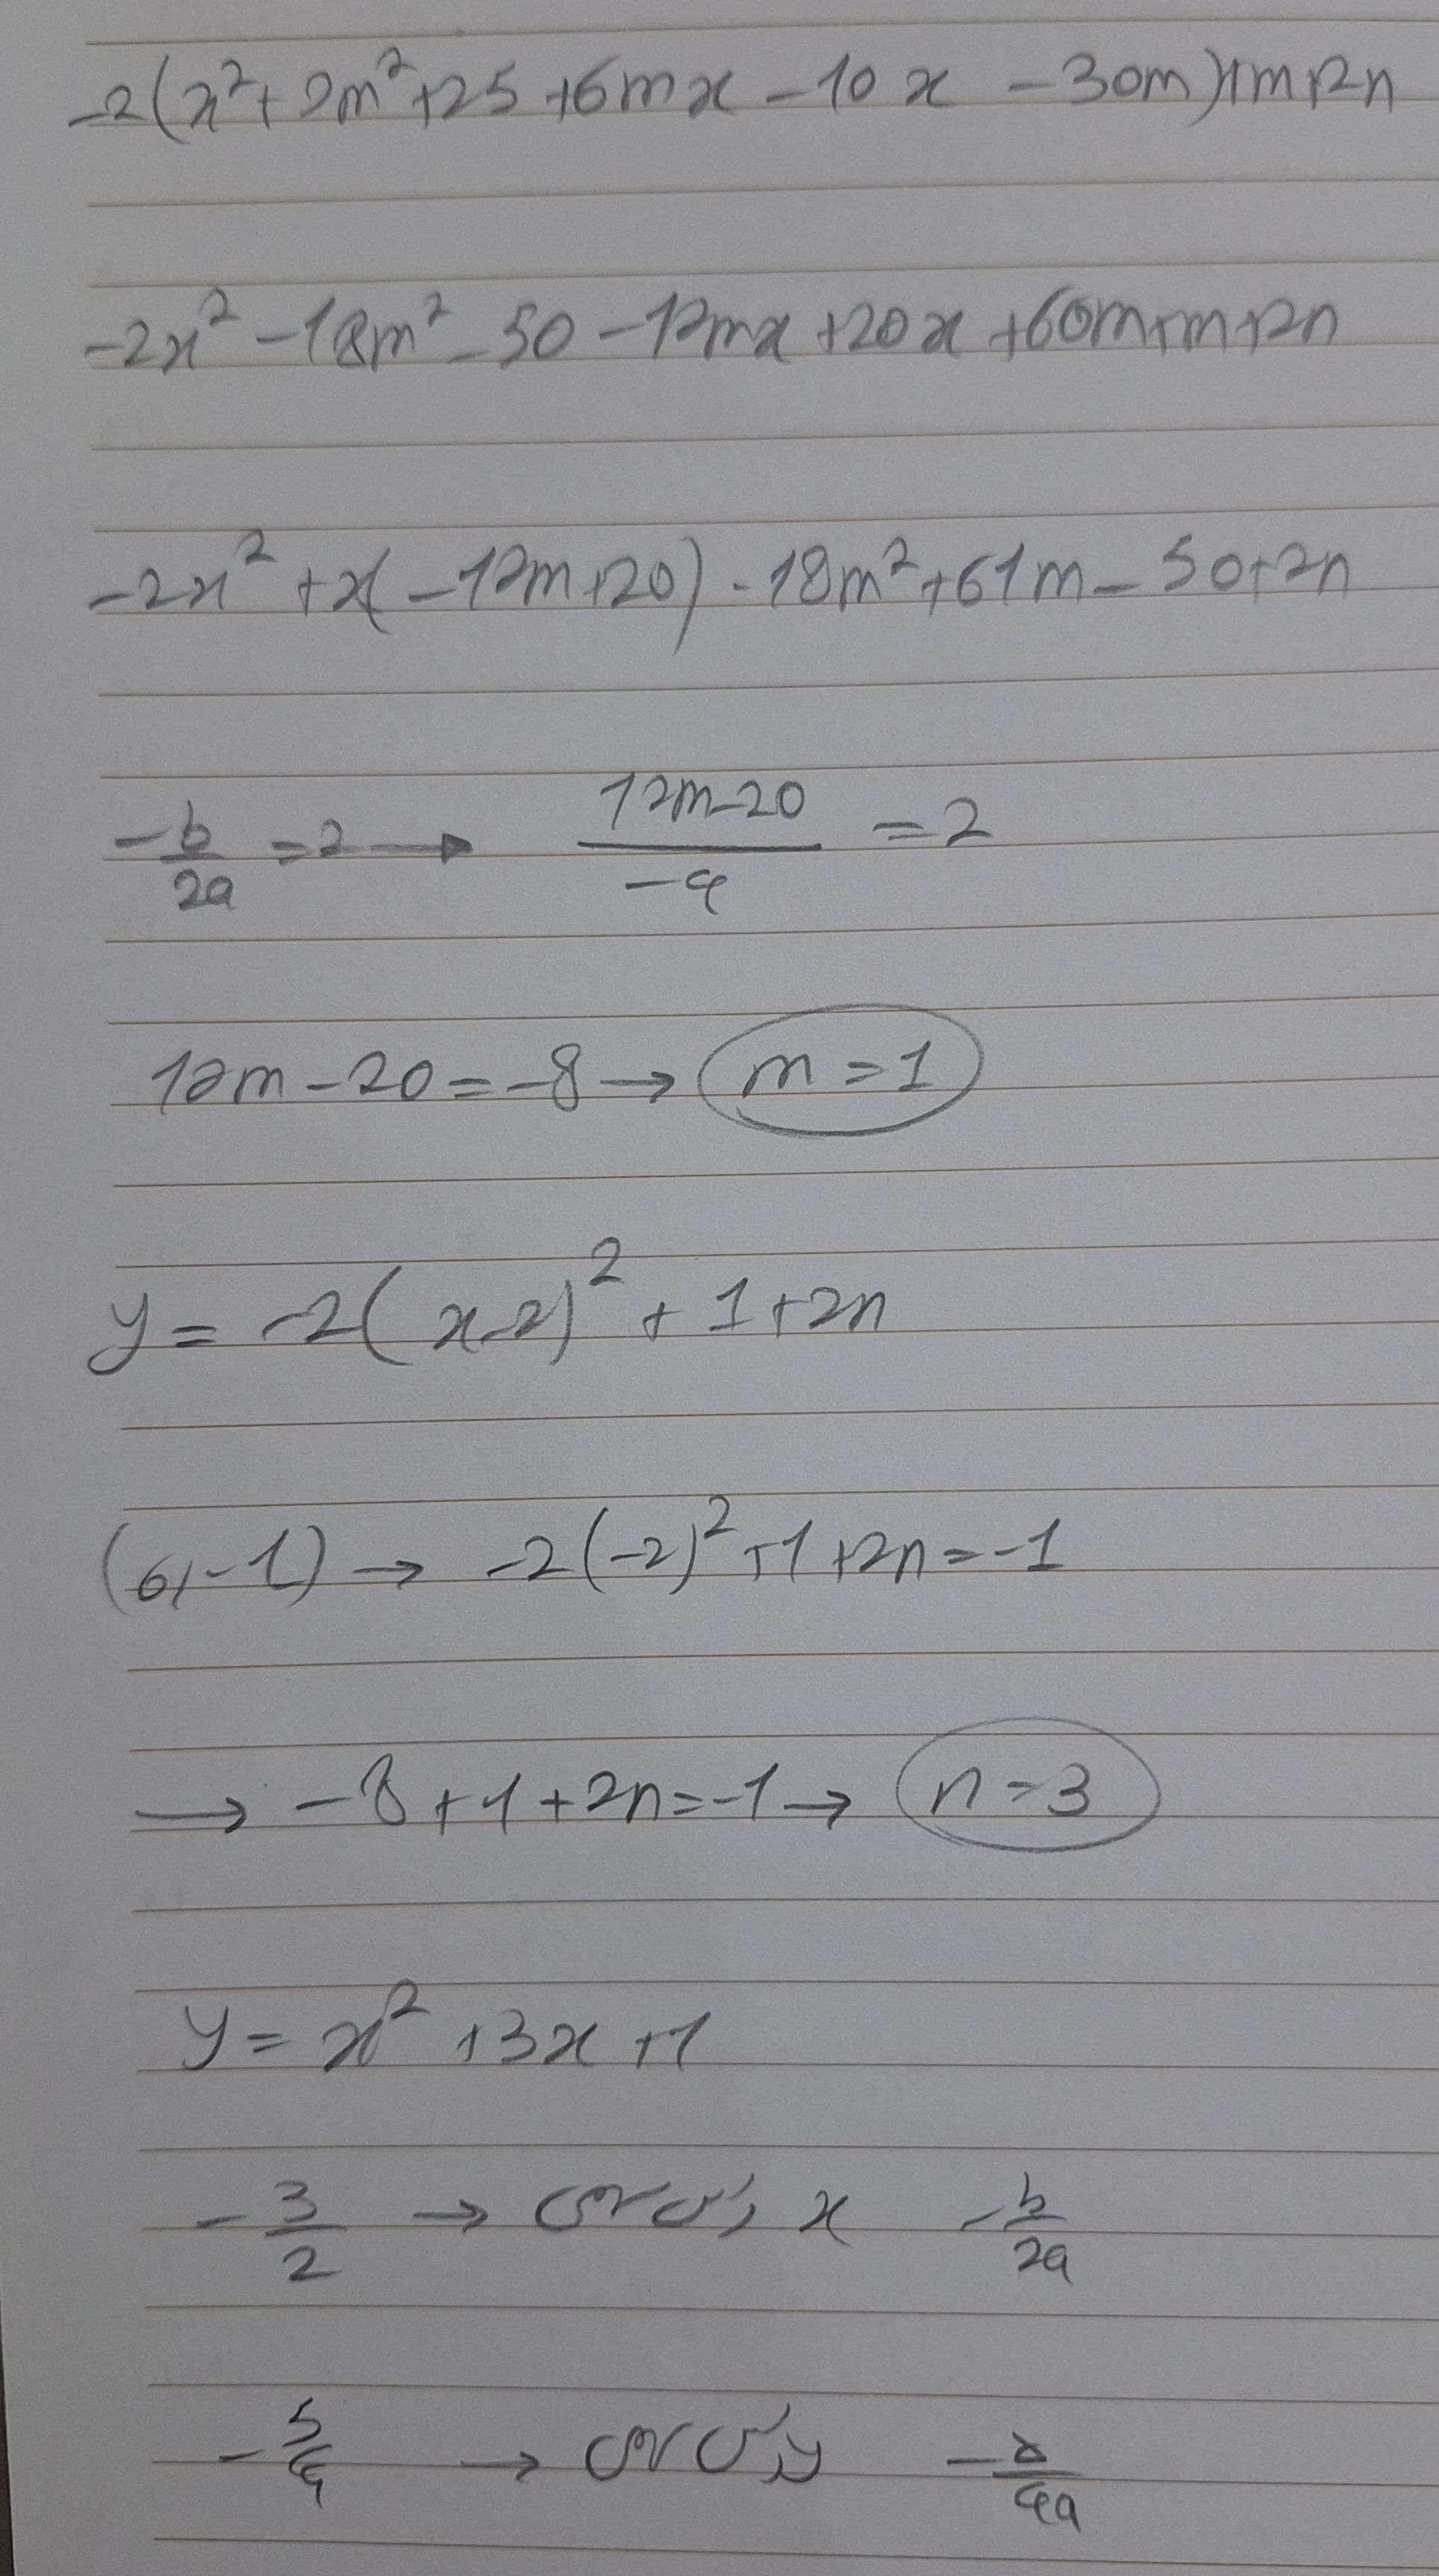 -2(x²+9m²+25+6mx-10x-30m)+m+2n
-2x²-18m²-50-12mx+20x+60m+m+2n
-2x²+x(-12m+20)-18m²+61m-50+2n
-b/2a=2→ 12m-20/-4 =2
12m-20=-8→ m=1
y=-2(x-2)²+1+2n
(0,-1)→ -2(-2)²+1+2n=-1
→ -8+1+2n=-1→ n=3
y=x²+3x+1
-3/2 → x راس سهمی -b/2a
-5/4 → y راس سهمی -Δ/4a